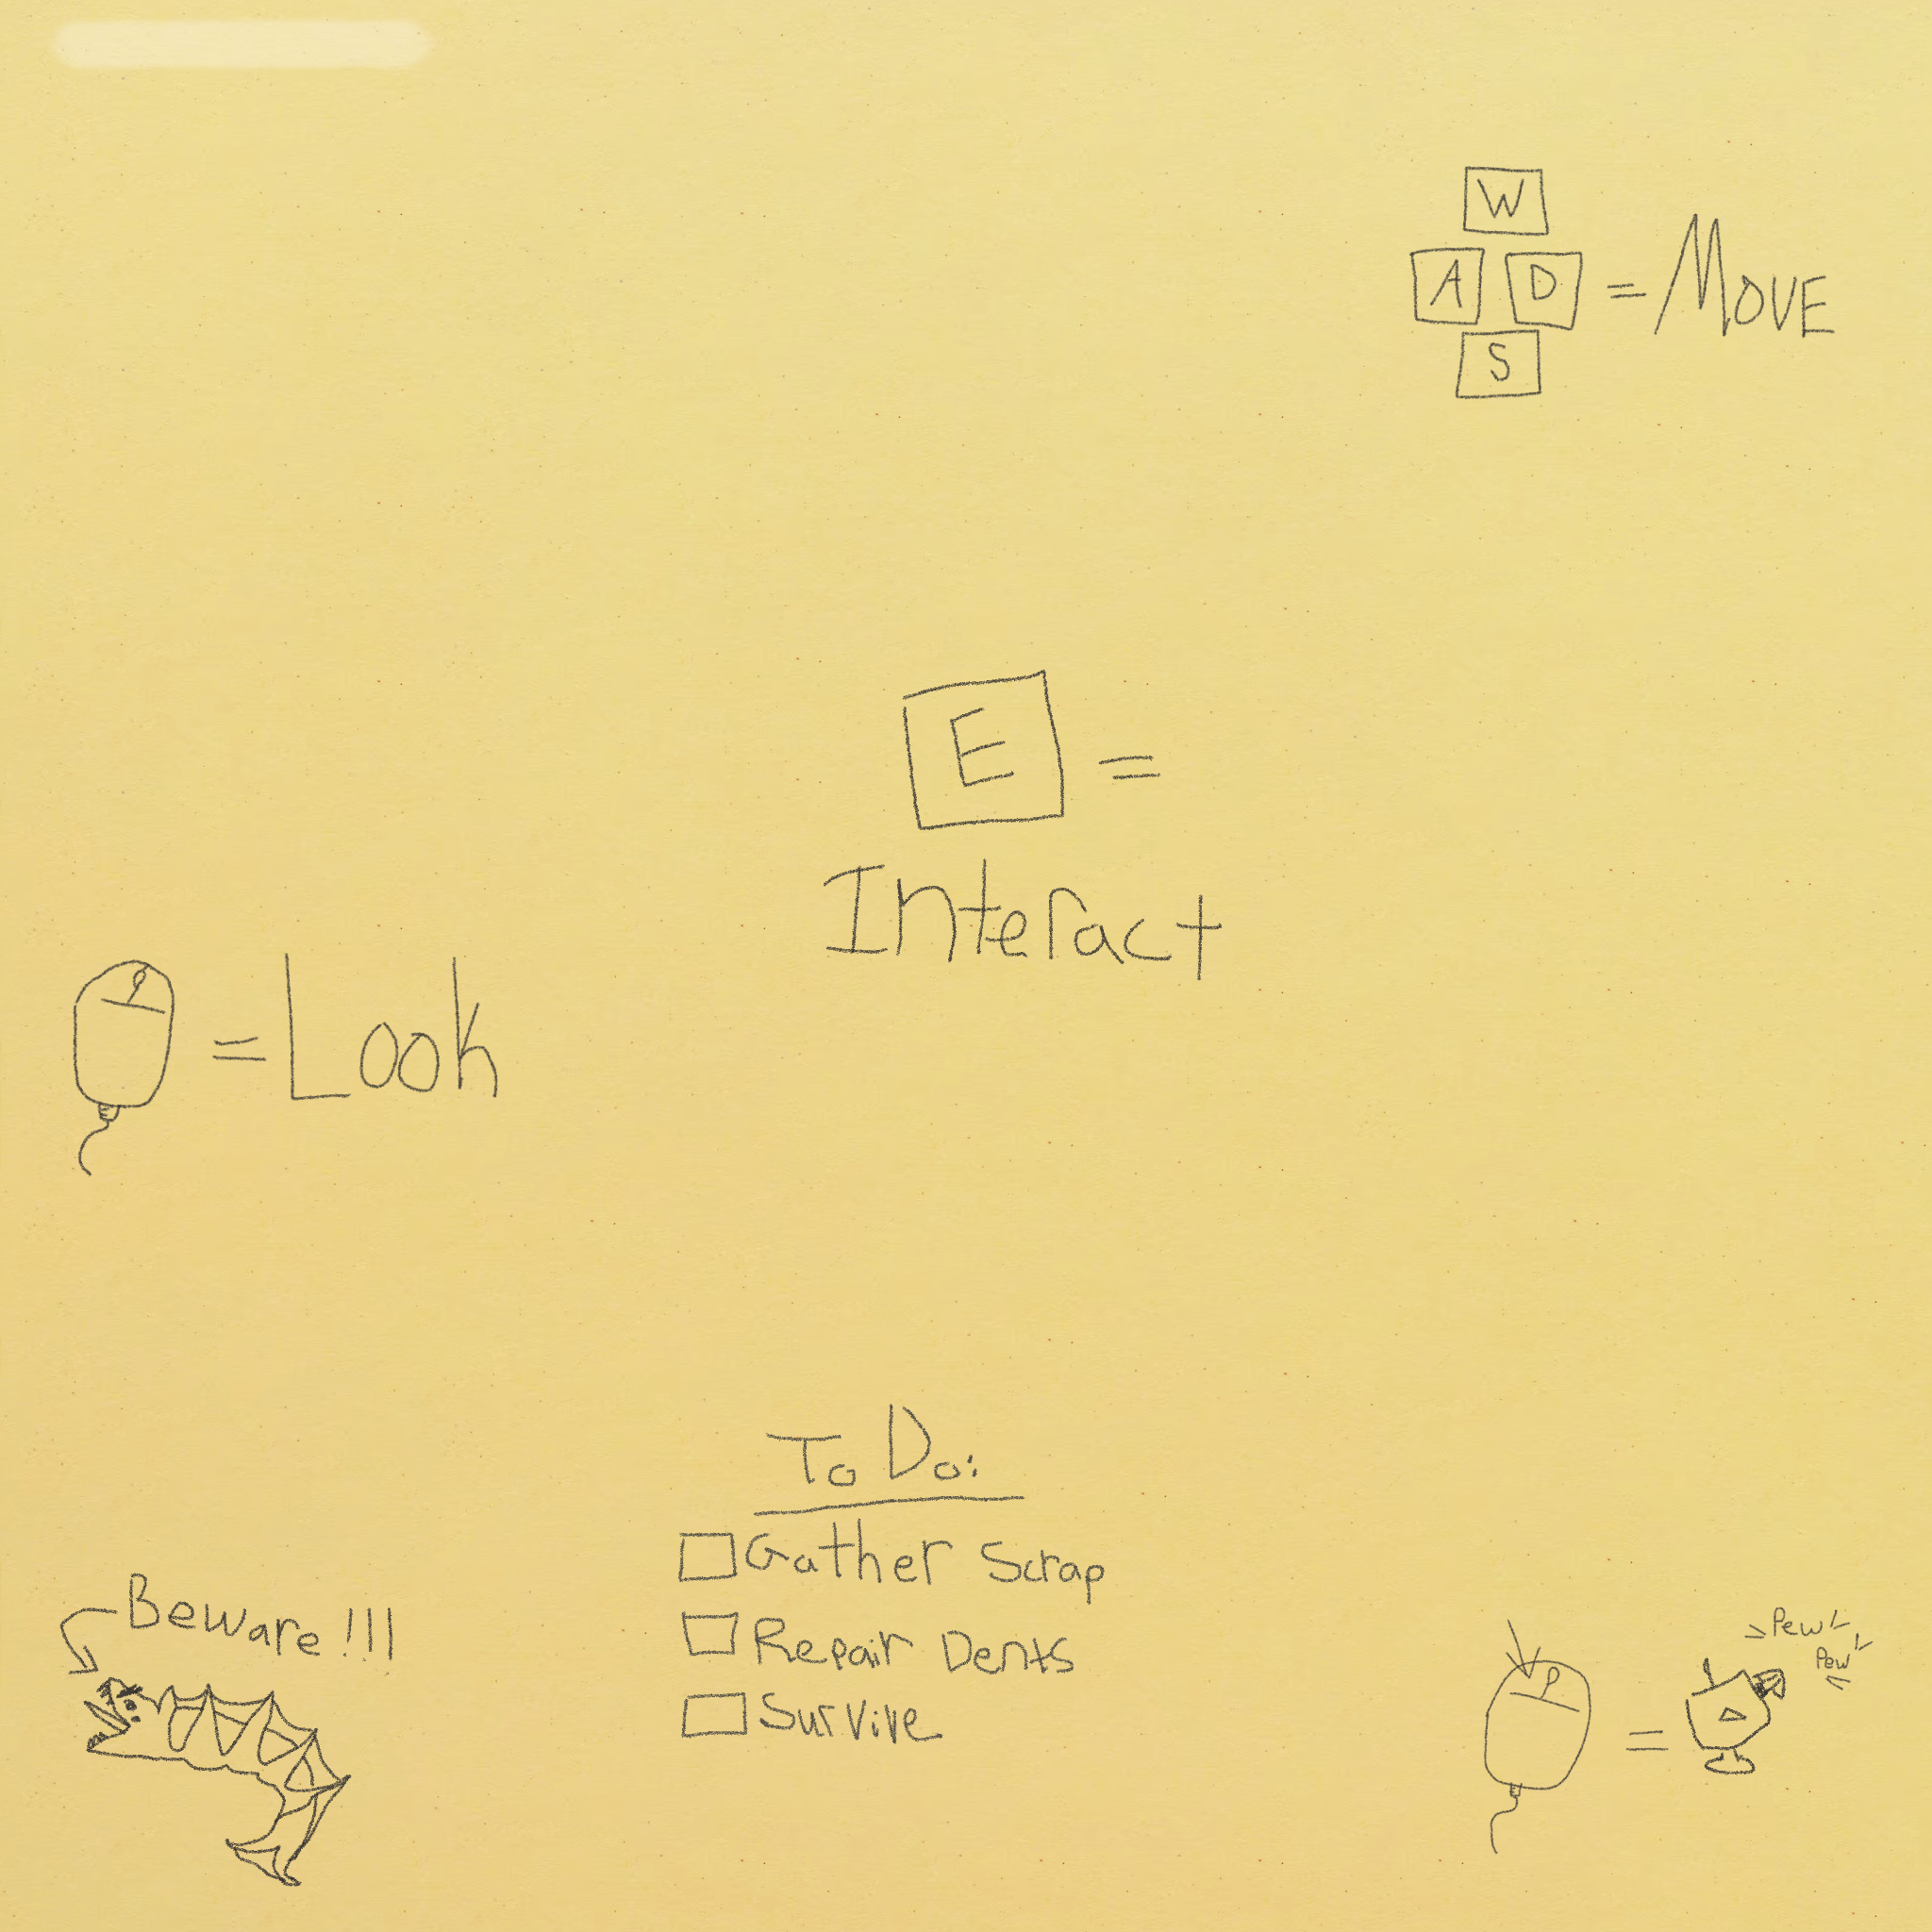 W
A D = Move
S
E =
Interact
= Look
To Do:
Gather Scrap
Repair Dents
Survive
Beware !!!
Pew
Pew
=